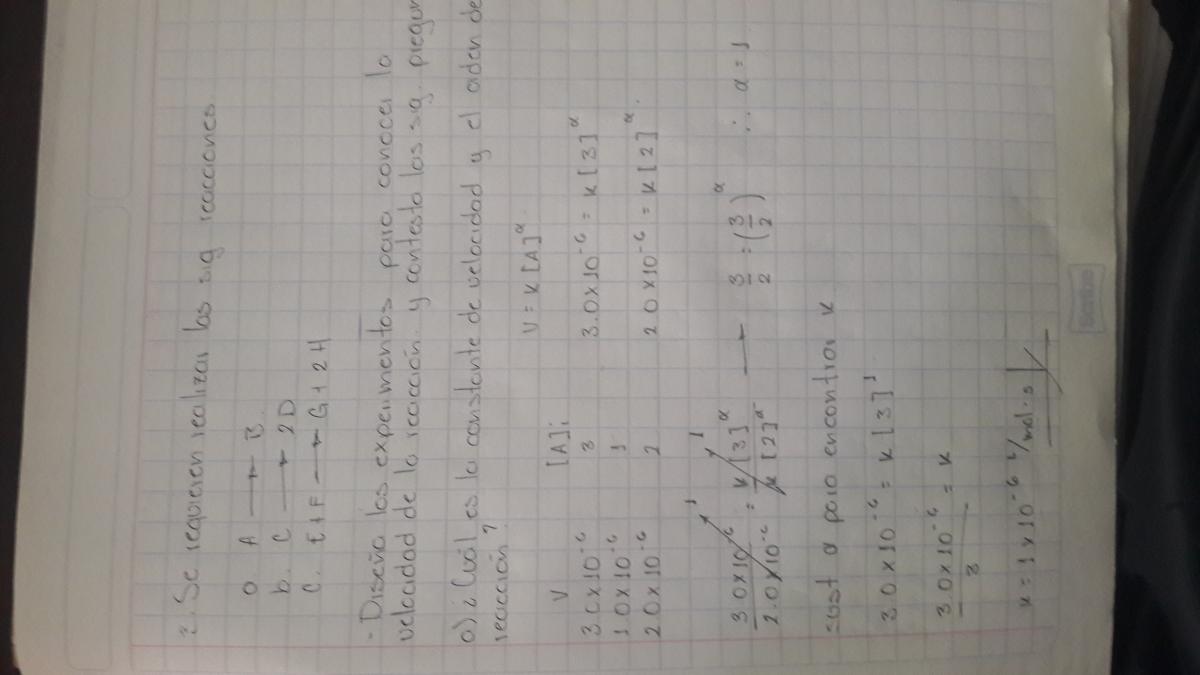 2. Se requieren realizar las sig reacciones.
a. A → B
b. C → 2D
c. E+F → G+2H
- Diseña los experimentos para conocer la
velocidad de la reacción. y contesta las sig.
a) ¿Cuál es la constante de velocidad y el orden de
reacción?
V [A]i V = K [A]^α
3.0x10^-6 3 3.0x10^-6 = K [3]^α
1.0x10^-6 1
2.0x10^-6 2 2.0x10^-6 = K [2]^α.
3.0x10^-6 / 2.0x10^-6 = K [3]^α / K [2]^α → 3/2 = (3/2)^α ∴ α = 1
α para encontrar K
3.0x10^-6 = K [3]^1
3.0x10^-6 / 3 = K
K = 1x10^-6 L/mol·s
Scribe